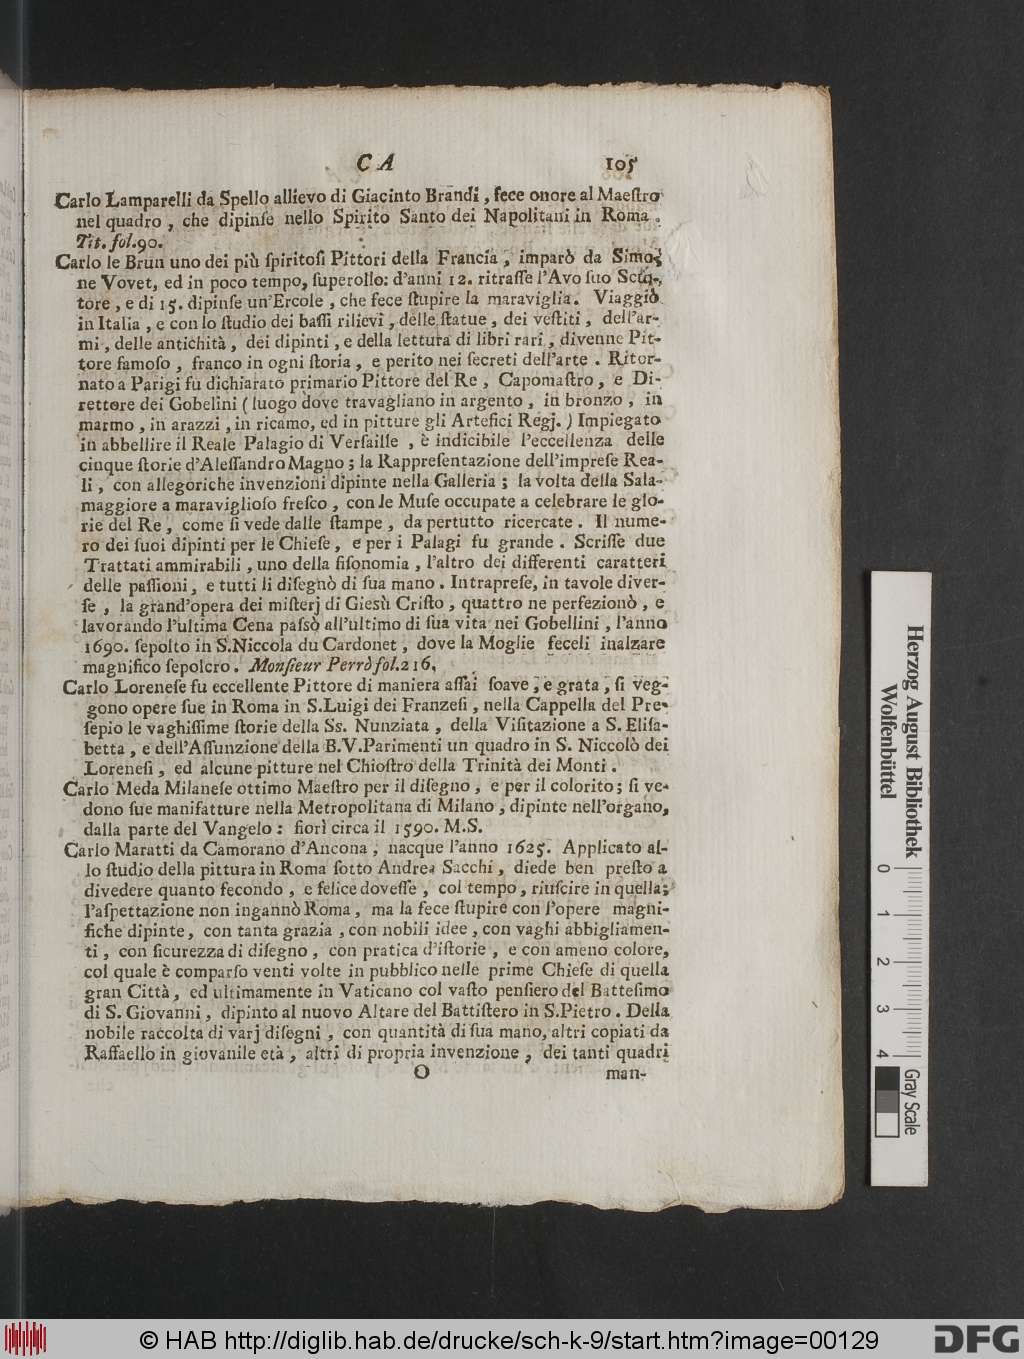 C A 105
Carlo Lamparelli da Spello allievo di Giacinto Brandi, fece onore al Maeſtro
nel quadro, che dipinſe nello Spirito Santo dei Napolitani in Roma.
Tit. fol.90.
Carlo le Brun uno dei più ſpiritoſi Pittori della Francia, imparò da Simo-
ne Vovet, ed in poco tempo, ſuperollo: d'anni 12. ritraſſe l'Avo ſuo Scul-
tore, e di 15. dipinſe un'Ercole, che fece ſtupire la maraviglia. Viaggiò
in Italia, e con lo ſtudio dei baſſi rilievi, delle ſtatue, dei veſtiti, dell'ar-
mi, delle antichità, dei dipinti, e della lettura di libri rari, divenne Pit-
tore famoſo, franco in ogni ſtoria, e perito nei ſecreti dell'arte. Ritor-
nato a Parigi fu dichiarato primario Pittore del Re, Capomaſtro, e Di-
rettore dei Gobelini (luogo dove travagliano in argento, in bronzo, in
marmo, in arazzi, in ricamo, ed in pitture gli Artefici Regj.) Impiegato
in abbellire il Reale Palagio di Verſaille, è indicibile l'eccellenza delle
cinque ſtorie d'Aleſſandro Magno; la Rappreſentazione dell'impreſe Rea-
li, con allegoriche invenzioni dipinte nella Galleria; la volta della Sala-
maggiore a maraviglioſo freſco, con le Muſe occupate a celebrare le glo-
rie del Re, come ſi vede dalle ſtampe, da pertutto ricercate. Il nume-
ro dei ſuoi dipinti per le Chieſe, e per i Palagi fu grande. Scriſſe due
Trattati ammirabili, uno della fiſonomia, l'altro dei differenti caratteri
delle paſſioni, e tutti li diſegnò di ſua mano. Intrapreſe, in tavole diver-
ſe, la grand'opera dei miſterj di Gieſù Criſto, quattro ne perfezionò, e
lavorando l'ultima Cena paſsò all'ultimo di ſua vita nei Gobellini, l'anno
1690. ſepolto in S.Niccola du Cardonet, dove la Moglie feceli inalzare
magnifico ſepolcro. Monſieur Perrò fol.216.
Carlo Loreneſe fu eccellente Pittore di maniera aſſai ſoave, e grata, ſi veg-
gono opere ſue in Roma in S.Luigi dei Franzeſi, nella Cappella del Pre-
ſepio le vaghiſſime ſtorie della Ss. Nunziata, della Viſitazione a S. Eliſa-
betta, e dell'Aſſunzione della B.V.Parimenti un quadro in S. Niccolò dei
Loreneſi, ed alcune pitture nel Chioſtro della Trinità dei Monti.
Carlo Meda Milaneſe ottimo Maeſtro per il diſegno, e per il colorito; ſi ve-
dono ſue manifatture nella Metropolitana di Milano, dipinte nell'organo,
dalla parte del Vangelo: fiorì circa il 1590. M.S.
Carlo Maratti da Camorano d'Ancona, nacque l'anno 1625. Applicato al-
lo ſtudio della pittura in Roma ſotto Andrea Sacchi, diede ben preſto a
divedere quanto fecondo, e felice doveſſe, col tempo, riuſcire in quella;
l'aſpettazione non ingannò Roma, ma la fece ſtupire con l'opere magni-
fiche dipinte, con tanta grazia, con nobili idee, con vaghi abbigliamen-
ti, con ſicurezza di diſegno, con pratica d'iſtorie, e con ameno colore,
col quale è comparſo venti volte in pubblico nelle prime Chieſe di quella
gran Città, ed ultimamente in Vaticano col vaſto penſiero del Batteſimo
di S. Giovanni, dipinto al nuovo Altare del Battiſtero in S.Pietro. Della
nobile raccolta di varj diſegni, con quantità di ſua mano, altri copiati da
Raffaello in giovanile età, altri di propria invenzione, dei tanti quadri
O man-
Herzog August Bibliothek
Wolfenbüttel
0 1 2 3 4
Gray Scale
© HAB http://diglib.hab.de/drucke/sch-k-9/start.htm?image=00129
DFG